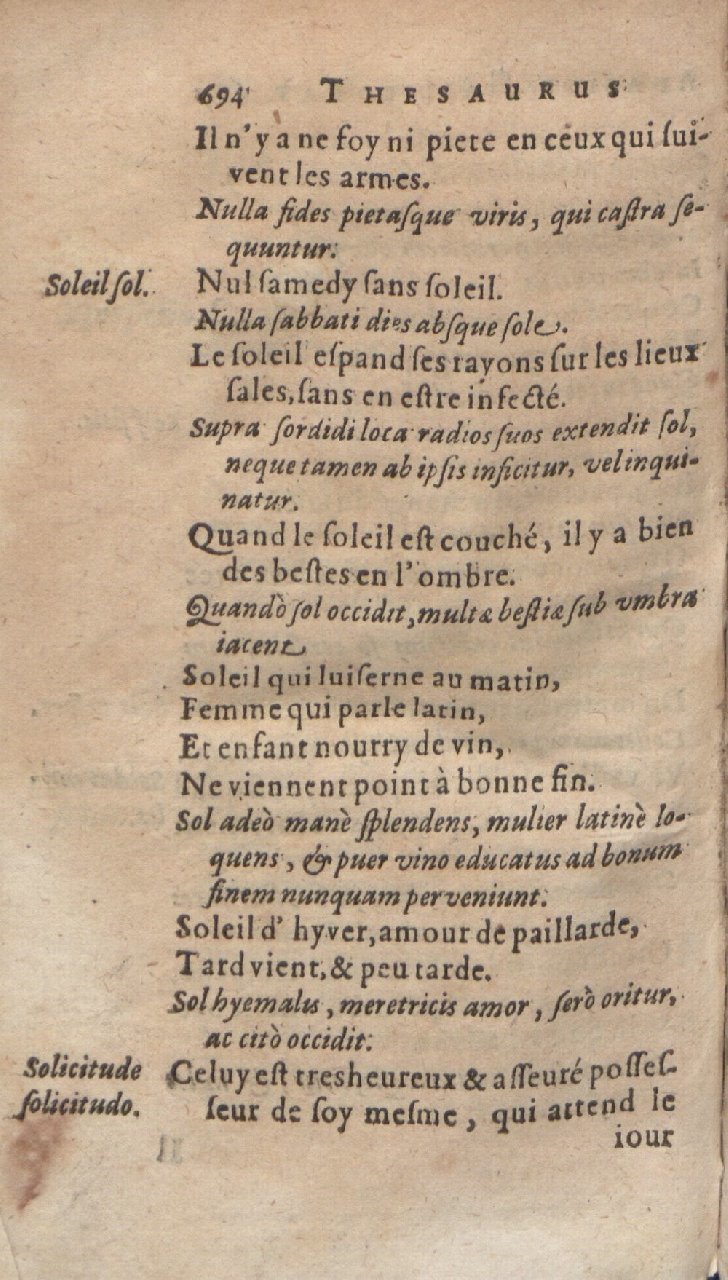 694 THESAURUS
Il n'y a ne foy ni pieté en ceux qui ſui-
vent les armes.
Nulla fides pietaſque viris, qui caſtra ſe-
quuntur.
Soleil ſol. Nul ſamedy ſans ſoleil.
Nulla ſabbati dies abſque ſole.
Le ſoleil eſpand ſes rayons ſur les lieux
ſales, ſans en eſtre infecté.
Supra ſordidi loca radios ſuos extendit ſol,
neque tamen ab ipſis inficitur, vel inqui-
natur.
Quand le ſoleil eſt couché, il y a bien
des beſtes en l'ombre.
Quandò ſol occidit, multæ beſtiæ ſub vmbra
iacent
Soleil qui luiſerne au matin,
Femme qui parle latin,
Et enfant nourry de vin,
Ne viennent point à bonne fin.
Sol adeò manè ſplendens, mulier latinè lo-
quens, & puer vino educatus ad bonum
finem nunquam perveniunt.
Soleil d'hyver, amour de paillarde,
Tard vient, & peu tarde.
Sol hyemalis, meretricis amor, ſerò oritur,
ac citò occidit.
Solicitude Celuy eſt tresheureux & aſſeuré poſſeſ-
ſolicitudo. ſeur de ſoy meſme, qui attend le
iour